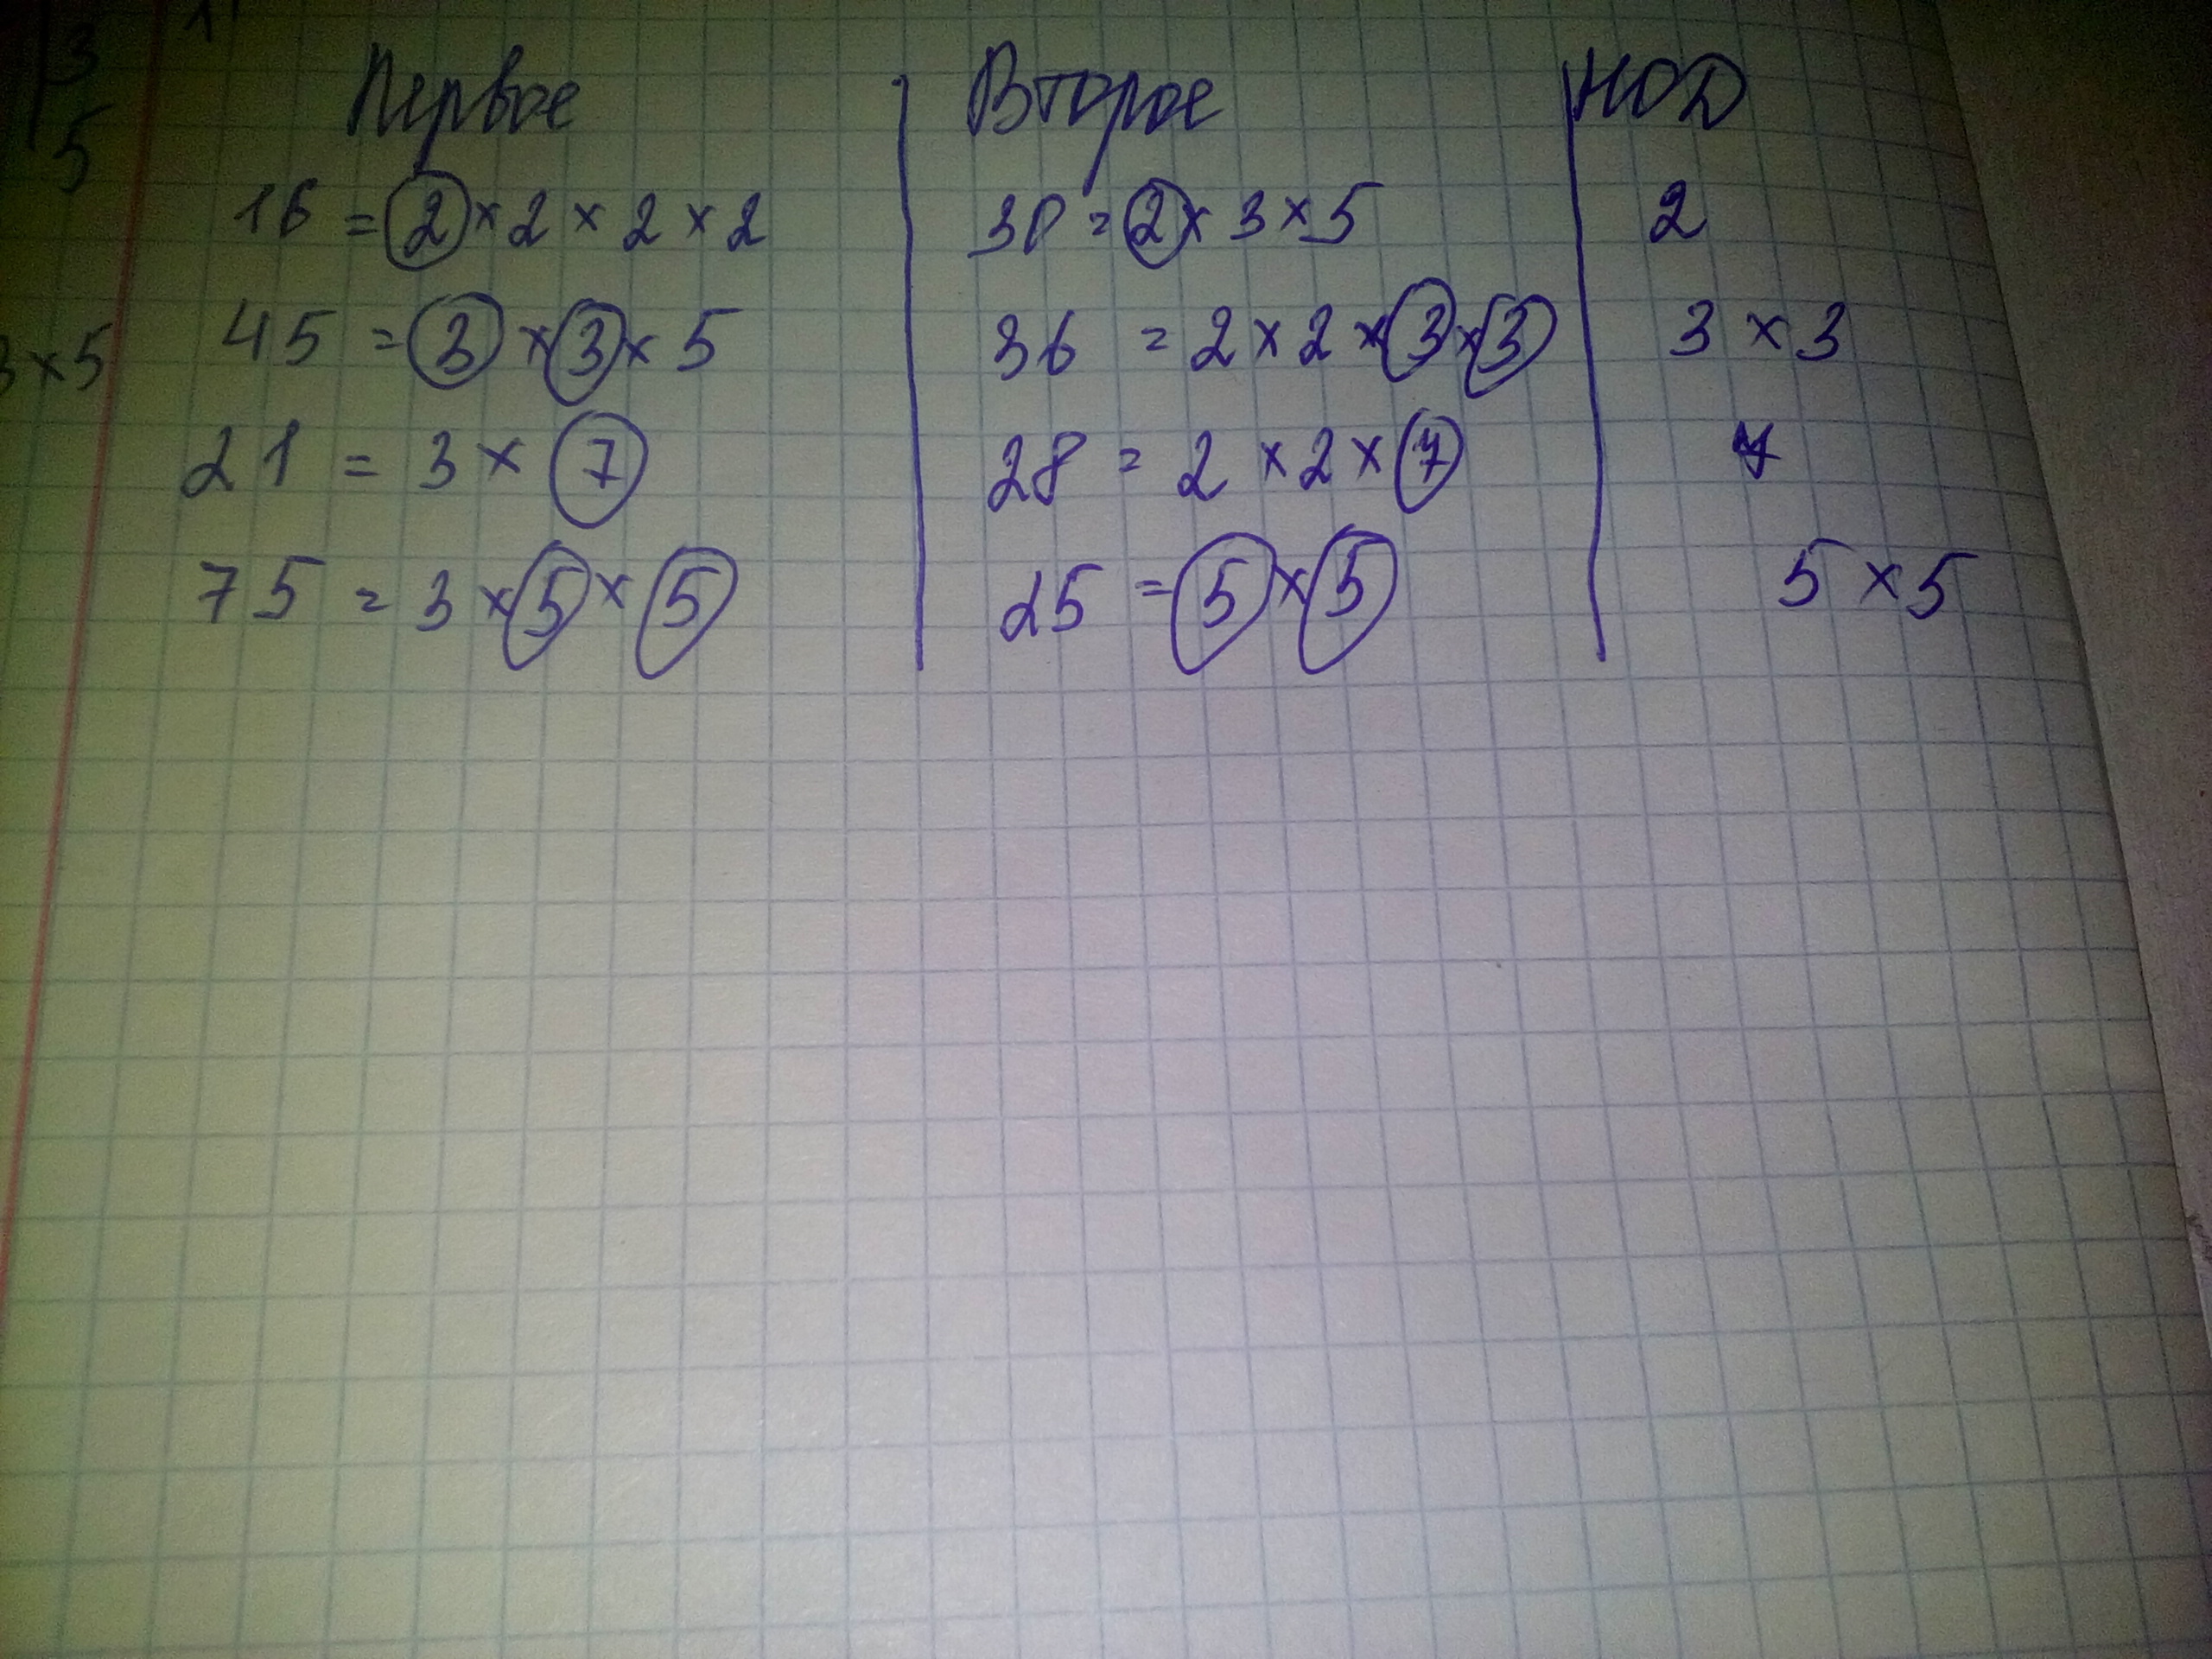 3
5
3 × 5
Первое Второе НОД
16 = 2 × 2 × 2 × 2 30 = 2 × 3 × 5 2
45 = 3 × 3 × 5 36 = 2 × 2 × 3 × 3 3 × 3
21 = 3 × 7 28 = 2 × 2 × 7 7
75 = 3 × 5 × 5 25 = 5 × 5 5 × 5